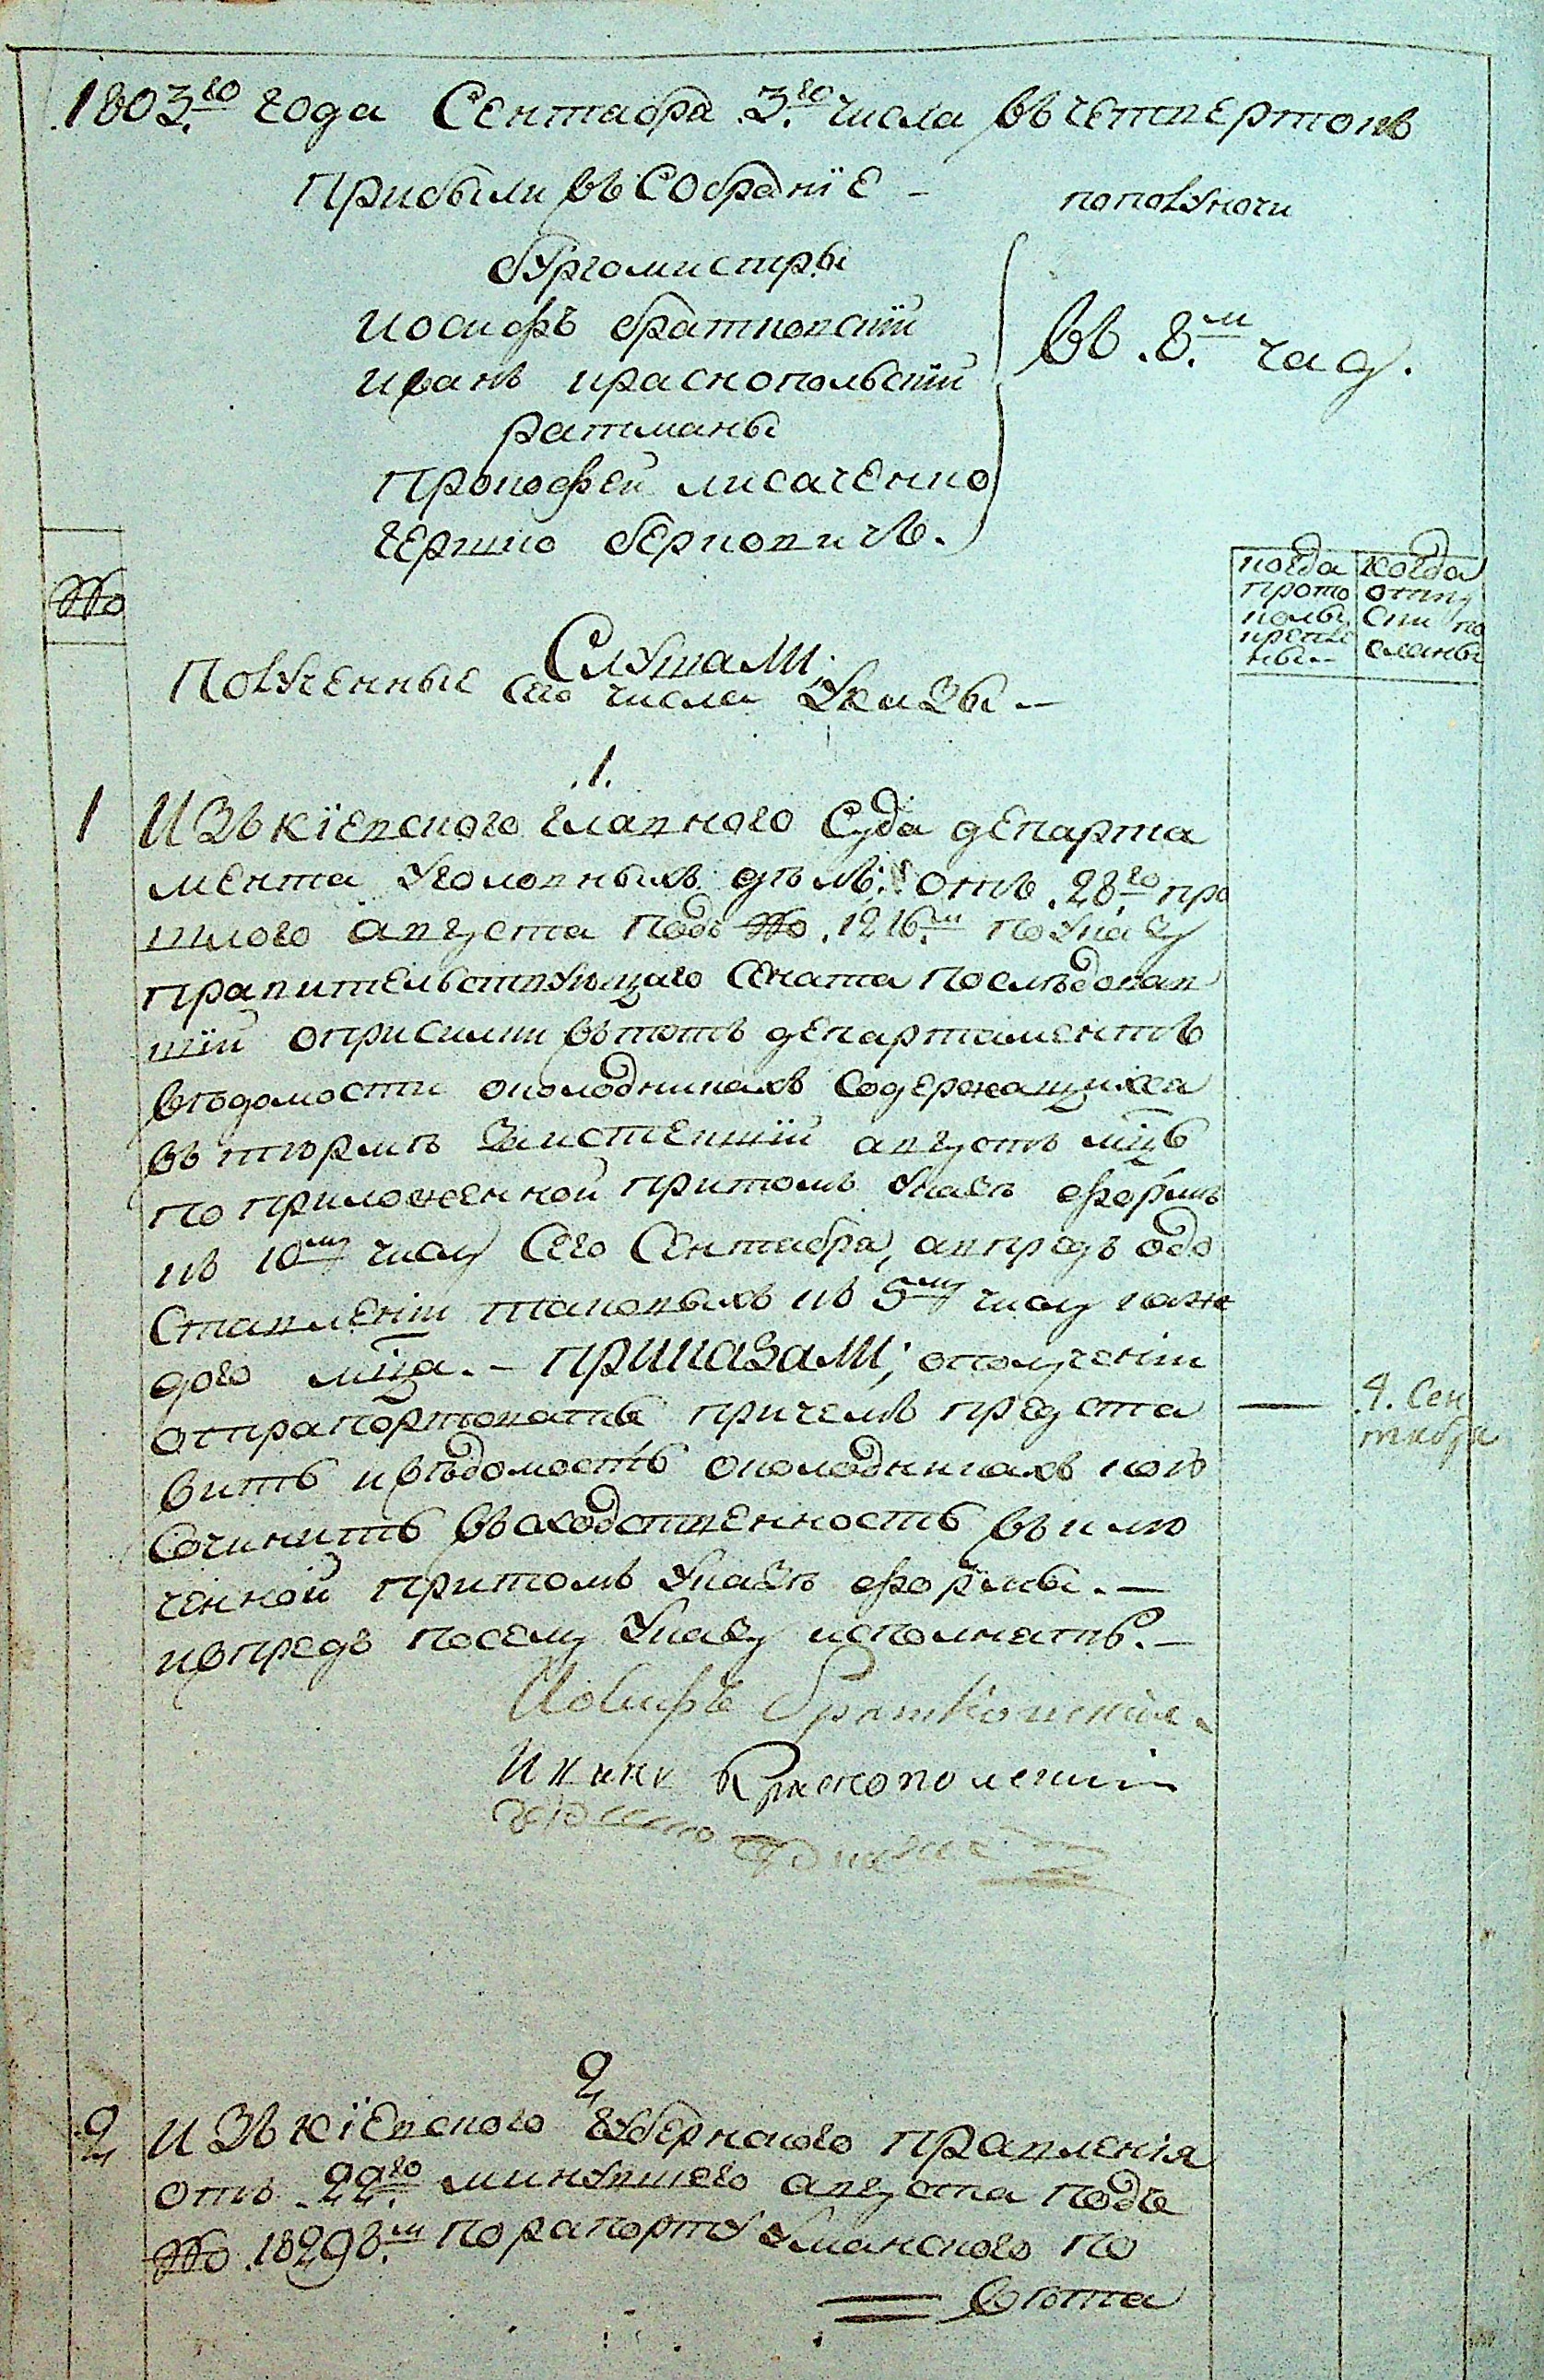 1803.го года Сентабра 3.го числа въ четвертокъ
Прибыли въ Собранїе –
пополуночи
бургомистры
Иосифъ братковскїй
въ .8.м часу.
Иванъ краснопольскїй
ратманы
Прокофей лисаченко
гершко берковичъ.
№
когда прото колы крепле ны –
когда отпу сти по сланы
Слушали;
Полученные Сего числа Указы –
.1.
1 Изъ кїевского главного Суда департа
мента Уголовныхъ дѣлъ: отъ .28.го про
шлого августа подъ № .1216.м по Указу
правительствующаго Сената последовав
шїй оприсилки въ тотъ департаментъ
вѣдомости околодникахъ Содержащихса
въ тюрмѣ Заистекшїй августъ мцъ
по приложенной притомъ Указѣ формѣ
къ 10му числу Сего Сентабра, авпредъ одо
Ставленїи таковыхъ къ 5му числу каж
дого мца. – приказали; ополученїи
отрапортовать причемъ предста
4. Сен
вить ивѣдомость околодникахъ кою
табра
Сочинить въ сходственность въ клю
ченной притомъ Указѣ формы. –
ивпредъ посему Указу исполнять. –
Иосифъ Братковский
Иванъ Краснополский
2
2 изъ кїевского губернского правленїя
отъ .22.го минувшего августа подъ
№ .18298.м порапорту Уманского по
вѣта